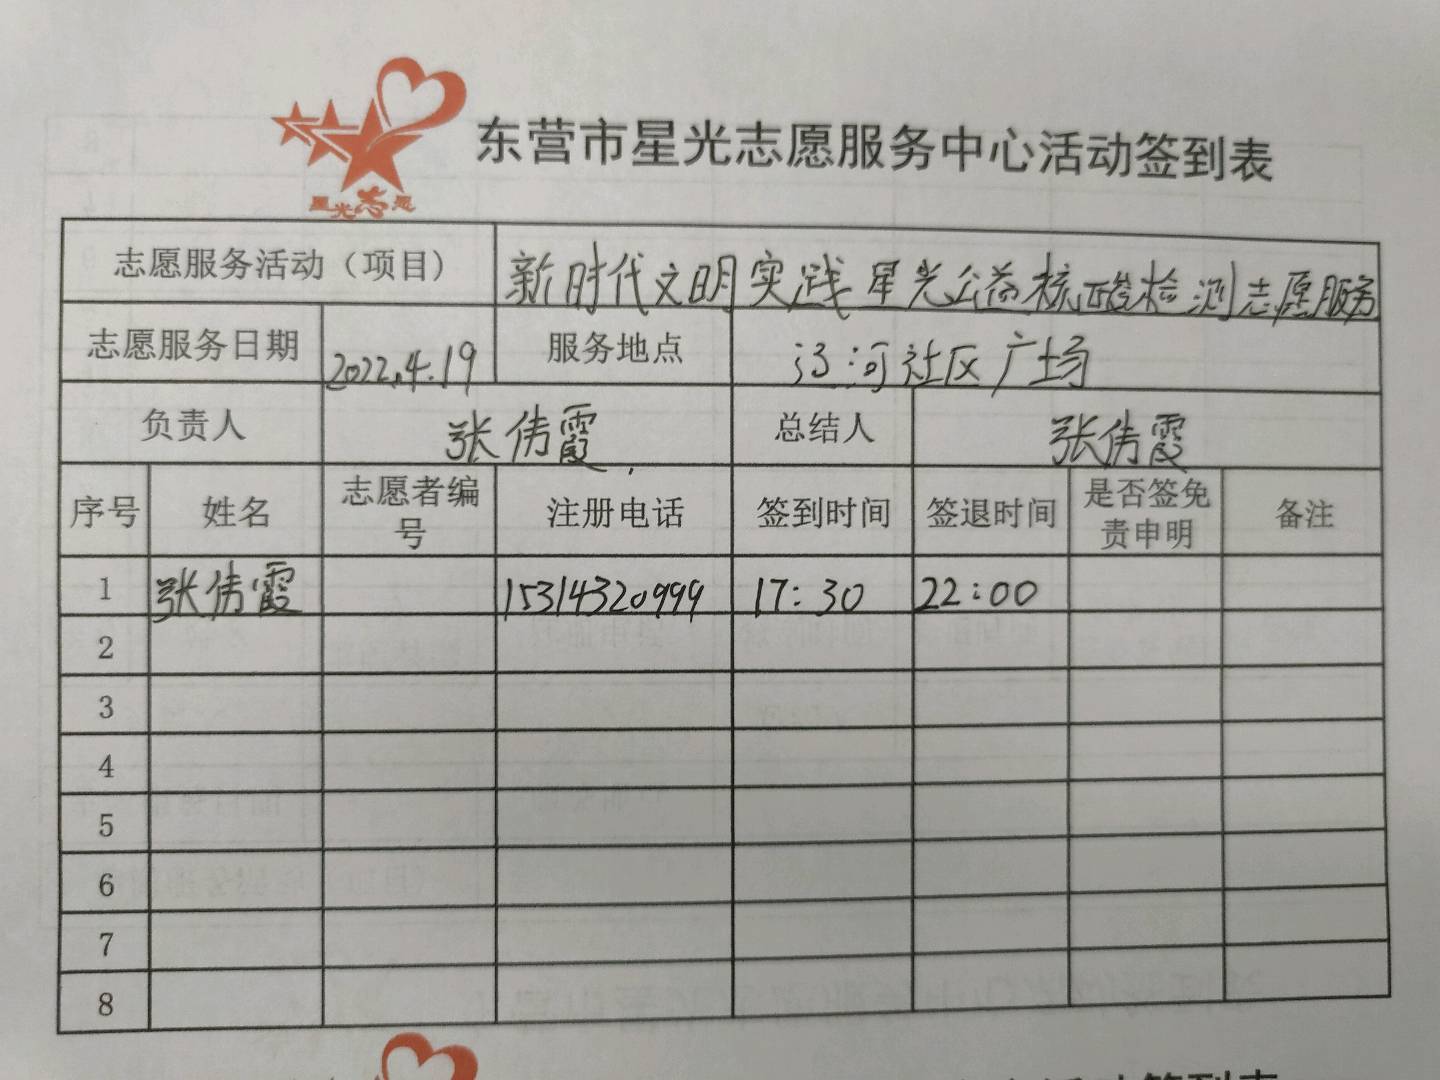 东营市星光志愿服务中心活动签到表
星光志愿
志愿服务活动（项目） 新时代文明实践星光公益核酸检测志愿服务
志愿服务日期 2022.4.19 服务地点 河社区广场
负责人 张伟霞 总结人 张伟霞
序号 姓名 志愿者编号 注册电话 签到时间 签退时间 是否签免责申明 备注
1 张伟霞 15314320999 17:30 22:00
2
3
4
5
6
7
8